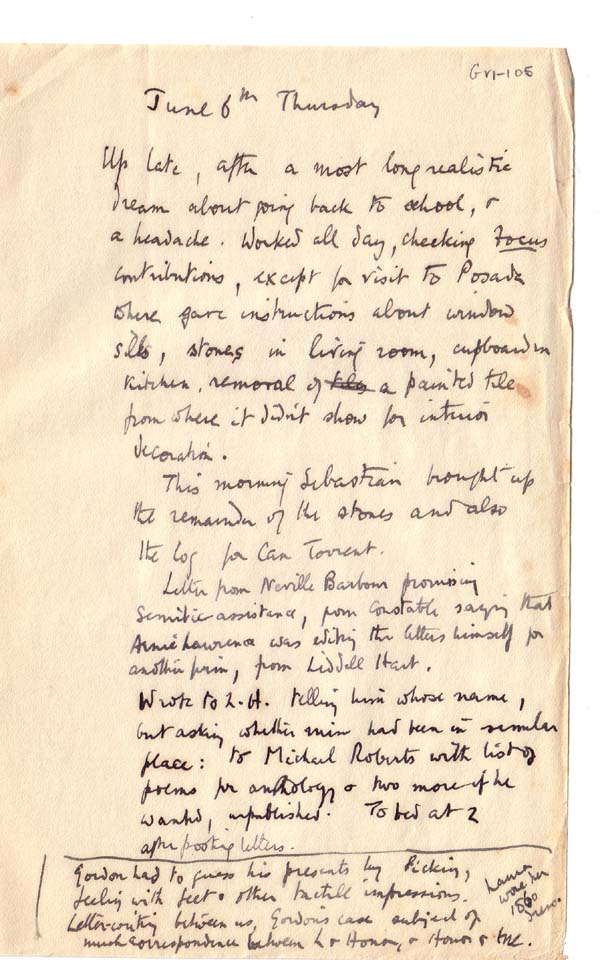 GVI-105
June 6th Thursday
Up late, after a most long realistic
dream about going back to school, &
a headache. Worked all day, checking Focus
contributions, except for visit to Posada
where gave instructions about window
sills, stones in living room, cupboard in
kitchen, removal of tiles a painted tile
from where it didn't show for interior
decoration.
This morning Sebastian brought up
the remainder of the stones and also
the log for Can Torrent.
Letter from Neville Barbour promising
Semitic assistance, from Constable saying that
Arnie Lawrence was editing the letters himself for
another firm, from Liddell Hart.
Wrote to L-H. telling him whose name,
but asking whether mine had been in similar
place: to Michael Roberts with list of
poems for anthology & two more if he
wanted, unpublished. To bed at 2
after posting letters.
Gordon had to guess his presents by licking,
feeling with feet & other tactile impressions.
Laura
wore her
1860
dress.
Letter-writing between us, Gordon's case subject of
much correspondence between L & Honor, & Honor & me.